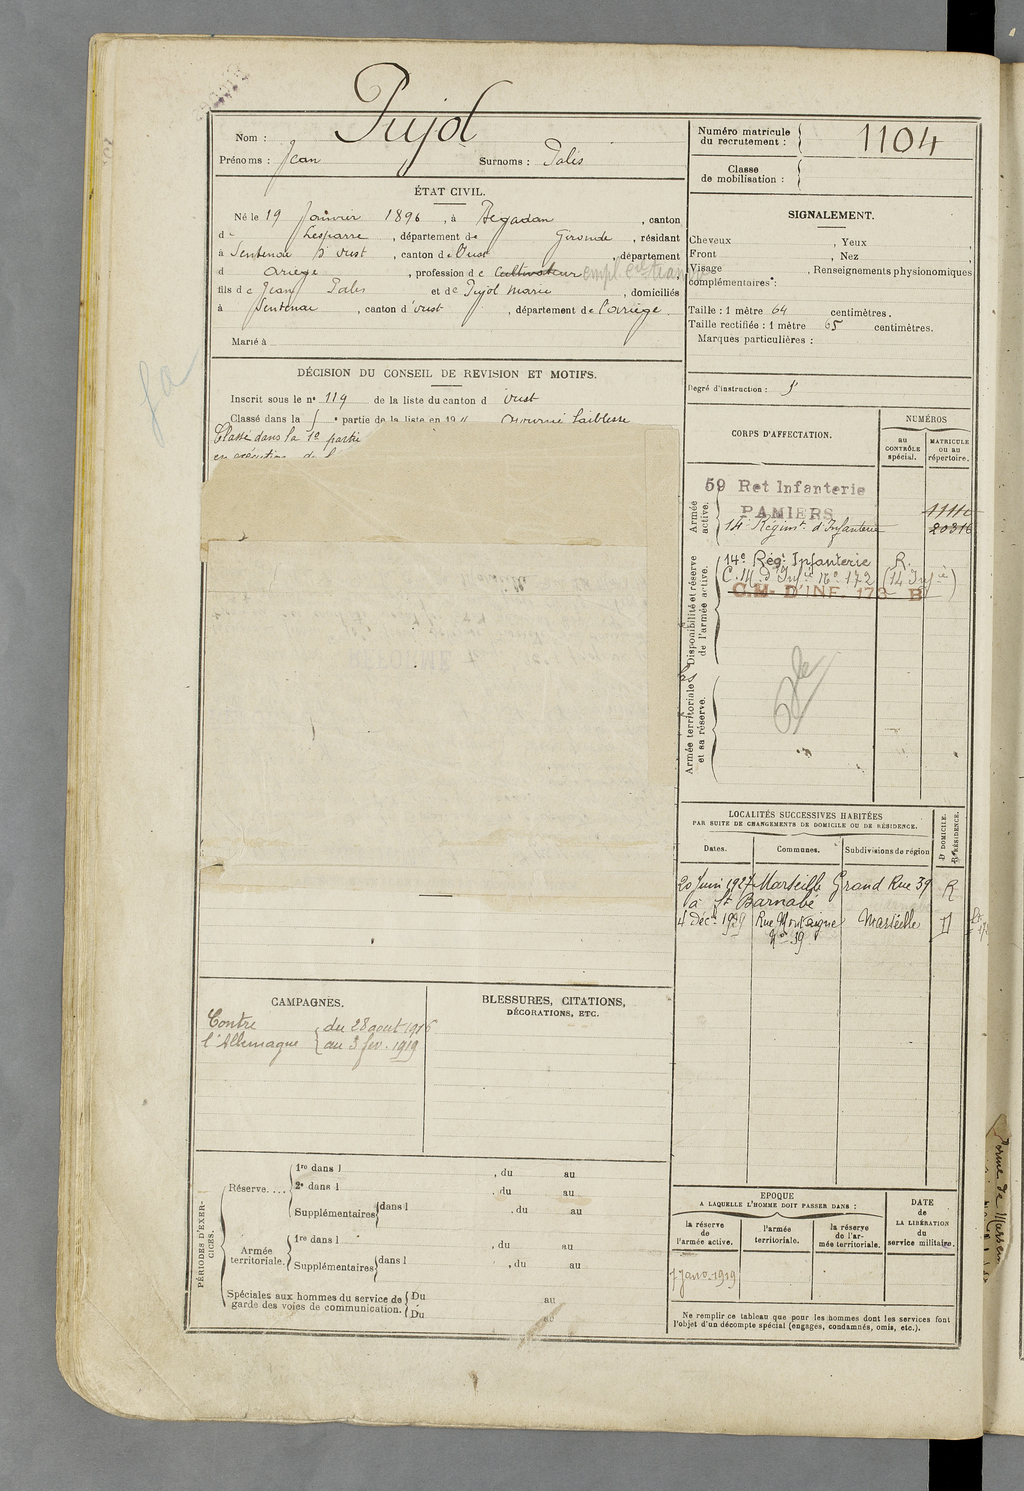 Pujol
Nom :
Prénoms : Jean Surnoms : Palis
ÉTAT CIVIL.
Né le 19 Janvier 1896, à Begadan, canton
de Lesparre, département de Gironde, résidant
à Sentenac d'oust, canton de Oust, département
d Ariège, profession de Cultivateur empl.
fils de Jean Palis et de Pujol Marie, domiciliés
à Sentenac, canton d'oust, département de l'ariège
Marié à
DÉCISION DU CONSEIL DE REVISION ET MOTIFS.
Inscrit sous le n° 119 de la liste du canton d oust
Classé dans la 5e partie de la liste en 19 Ajourné faiblesse
Classé dans la 1e partie
en exécution de
CAMPAGNES.
Contre l'Allemagne { du 28 aout 1916
au 3 fev. 1919
BLESSURES, CITATIONS,
DÉCORATIONS, ETC.
PÉRIODES D'EXERCICES.
Réserve....
1re dans l , du au
2e dans l , du au
Supplémentaires dans l , du au
Armée territoriale.
1re dans l , du au
Supplémentaires dans l , du au
Spéciales aux hommes du service de garde des voies de communication.
Du au
Du au
Numéro matricule du recrutement : 1104
Classe de mobilisation :
SIGNALEMENT.
Cheveux , Yeux
Front , Nez
Visage , Renseignements physionomiques
complémentaires :
Taille : 1 mètre 64 centimètres.
Taille rectifiée : 1 mètre 65 centimètres.
Marques particulières :
Degré d'instruction : 3
CORPS D'AFFECTATION.
NUMÉROS
au CONTRÔLE spécial.
MATRICULE ou au répertoire.
Armée active.
59 Ret Infanterie
PAMIERS
14e Régimt. d'Infanterie 20316
Disponibilité et réserve de l'armée active.
14e Rég. Infanterie R.
C.M. d'Infie No 172 (14 Infie)
C.M. D'INF. 173 B
Armée territoriale et sa réserve.
LOCALITÉS SUCCESSIVES HABITÉES
PAR SUITE DE CHANGEMENTS DE DOMICILE OU DE RÉSIDENCE.
Dates. Communes. Subdivisions de région D. DOMICILE. R. RÉSIDENCE.
20 Juin 1927 Marseille Grand Rue 39 R
à St Barnabé
4 Déc. 1929 Rue Montaigne Marseille D
No 39
EPOQUE
A LAQUELLE L'HOMME DOIT PASSER DANS :
la réserve de l'armée active.
l'armée territoriale.
la réserve de l'armée territoriale.
DATE de LA LIBÉRATION du service militaire.
1 Janv. 1919
Ne remplir ce tableau que pour les hommes dont les services font
l'objet d'un décompte spécial (engagés, condamnés, omis, etc.).